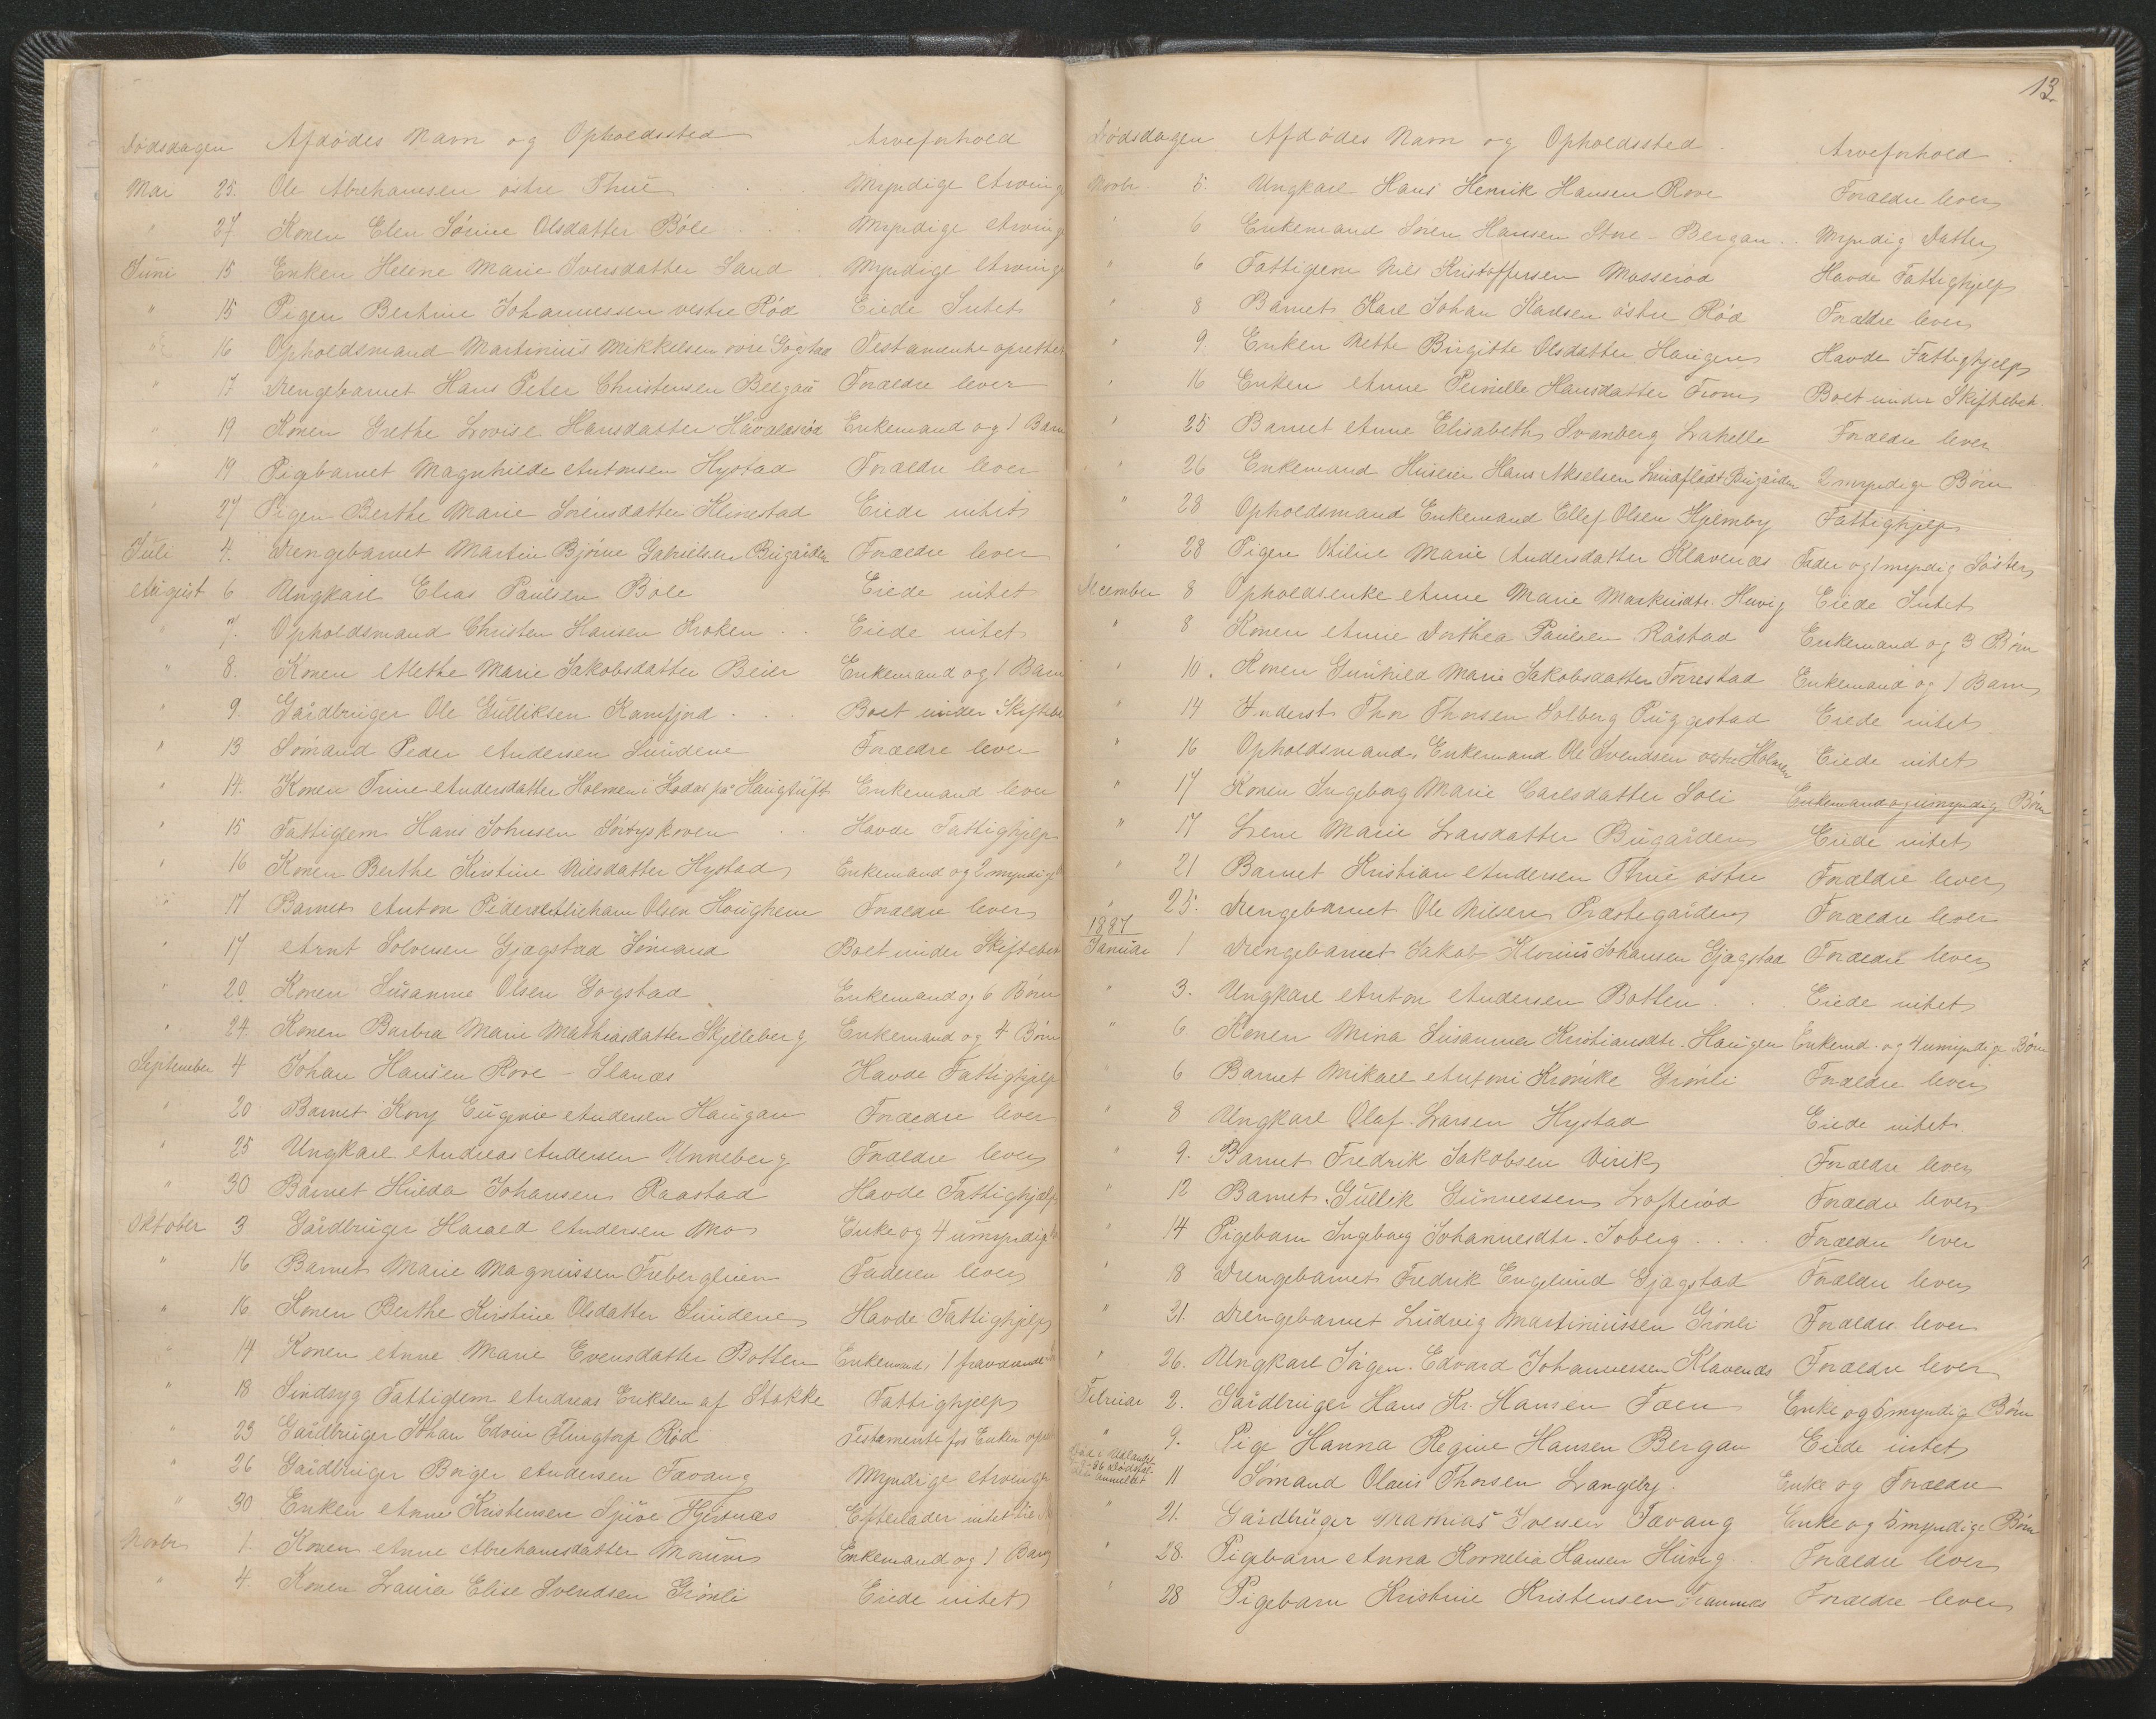 Dødsdagen Afdødes Navn og Opholdssted Arveforhold
Mai 25. Ole Abrehamsen østre Thue Myndige Arving
" 27 Konen Elen Sørine Olsdatter Bøle Myndige Arving
Juni 15 Enken Helene Marie Iversdatter Sand Myndige Arving
" 15 Pigen Bertine Johannessen vestre Rød Eiede Intet
" 16 Opholdsmand Martinius Mikkelsen øvre Gogstad Testamente oprettet
" 17 Drengebarnet Hans Peter Christensen Bergan Forældre lever
" 19 Konen Grethe Lovise Hansdatter Haraldsrød Enkemand og 1 Barn
" 19 Pigbarnet Magnhilde Antonsen Hystad Forældre lever
" 27 Pigen Berthe Marie Sørensdatter Klinestad Eiede intet
Juli 4. Drengebarnet Martin Bjørne Gabrielsen Bugården Forældre lever
August 6 Ungkarl Elias Paulsen Bøle Eiede intet
" 7. Opholdsmand Christen Hansen Kroken Eiede intet
" 8. Konen Methe Marie Jakobsdatter Beier Enkemand og 1 Barn
" 9. Gårdbruger Ole Gulliksen Kamfjord Boet under Skifteb
" 13 Sømand Peder Andersen Sundene Forældre lever
" 14. Konen Trine Andersdatter Holmen i Hodal på Haugtuft Enkemand lever
" 15 Fattiglem Hans Johnsen Sørbyskoven Havde Fattighjelp
" 16 Konen Berthe Kirstine Nilsdatter Hystad Enkemand og 2 myndige
" 17 Barnet Anton Pider Abreham Olsen Haughem Forældre lever
" 17 Arnt Solversen Gjøgstad Sømand Boet under Skiftebeh
" 20 Konen Susanne Olsen Gogstad Enkemand og 6 Børn
" 24 Konen Barbra Marie Mathiasdatter Skjelleberg Enkemand og 4 Børn
September 4 Johan Hansen Rove - Slanæs Havde Fattighjelp
" 20 Barnet Kory Eugenie Andersen Haugan Forældre lever
" 25 Ungkarl Andreas Andersen Unneberg Forældre lever
" 30 Barnet Hilda Johansen Raastad Havde Fattighjælp
Oktober 3 Gårdbruger Harald Andersen Mo Enke og 4 umyndig
" 16 Barnet Marie Magnussen Freberglien Faderen lever
" 16 Konen Berthe Kirstine Olsdatter Sundene Havde Fattighjelp
" 14 Konen Anne Marie Evensdatter Botten Enkemand, 1
" 18 Sindsyg Fattiglem Andreas Eriksen af Stokke Fattighjelp
" 23 Gårdbruger Johan Edvin Flingtorp Rød Testamente for Enken
" 26 Gårdbruger Børger Andersen Tavang Myndige Arvinger
" 30 Enken Anne Kristensen Spire Hjertnæs Efterlader intet
Novbr 1 Konen Anne Abrehamsdatter Morum Enkemand og 1 Barn
" 4. Konen Laura Elise Svendsen Grønli Eiede intet
13.
Dødsdagen Afdødes Navn og Opholdssted. Arveforhold.
Novbr. 5. Ungkarl Hans Henrik Hansen Rove Forældre lever
" 6 Enkemand Søren Hansen Store - Bergan Myndig Datter
" 6 Fattiglem Nils Kristoffersen Masserød Havde Fattighjelp
" 8 Barnet Karl Johan Karlsen østre Rød Forældre lever
" 9. Enken Mette Birgitte Olsdatter Haugen Havde Fattighjelp
" 16 Enken Anne Pernille Hansdatter From Boet under Skiftebeh.
" 25 Barnet Anne Elisabeth Svanberg Lahelle Forældre lever
" 26 Enkemand Huseier Hans Akselsen Lindflådt Bugården 2 myndige Børn
" 28 Opholdsmand Enkemand Ellef Olsen Hjelmby Fattighjelp
" 28 Pigen Otilie Marie Andersdatter Klavenæs Fader og 1 myndig Søster
December 8 Opholdsenke Anne Marie Markusdtr. Huvig Eiede Intet
" 8 Konen Anne Dorthea Paulsen Råstad Enkemand og 3 Børn
" 10. Konen Gunhild Marie Jakobsdatter Forrestad Enkemand og 1 Barn
" 14 Inderst Thor Thorsen Solberg Puggestad Eiede intet
" 16 Opholdsmand, Enkemand Ole Svendsen østre Holmen Eiede intet
" 17 Konen Ingeborg Marie Carlsdatter Soli Enkemand og umyndige Børn
" 17 Lene Marie Larsdatter Bugården Eiede intet
" 21 Barnet Kristian Andersen Thue østre Forældre lever
" 25. Drengebarnet Ole Nilsen Præstegården Forældre lever
1887
Januar 1 Drengebarnet Jakob Klonius Johansen Gjøgstad Forældre lever
" 3. Ungkarl Anton Andersen Botten Eiede intet
" 6 Konen Mina Susanna Kristiansdtr. Haugen Enkemd. og 4 umyndige Børn
" 6 Barnet Mikael Antoni Krønike Grønli Forældre lever
" 8 Ungkarl Olaf Larsen Hystad Eiede intet.
" 9. Barnet Fredrik Jakobsen Virik Forældre lever
" 12 Barnet Gullik Gunnessen Lofterød Forældre lever
" 14 Pigebarn Ingeborg Johannesdtr. Joberg Forældre lever
" 18 Drengebarnet Fredrik Engelund Gjøgstad Forældre lever
" 21. Drengebarnet Ludvig Martiniussen Grønli Forældre lever
" 26. Ungkarl Jørgen Edvard Johannessen Klavenæs Forældre lever
Februar 2. Gårdbruger Hans Kr. Hansen Faen Enke og 6 myndige Børn
" 9. Pige Hanna Regine Hansen Bergan Eiede intet
Død i Udlandet 86 Dødsfaldet anmeldt 11 Sømand Olaus Thorsen Langeby. Enke og Forældre
" 21. Gårdbruger Mathias Iversen Tavang Enke og 5 myndige Børn
" 28. Pigebarn Anna Kornelia Hansen Huvig Forældre lever
" 28 Pigebarn Kristine Kristensen Framnæs Forældre lever